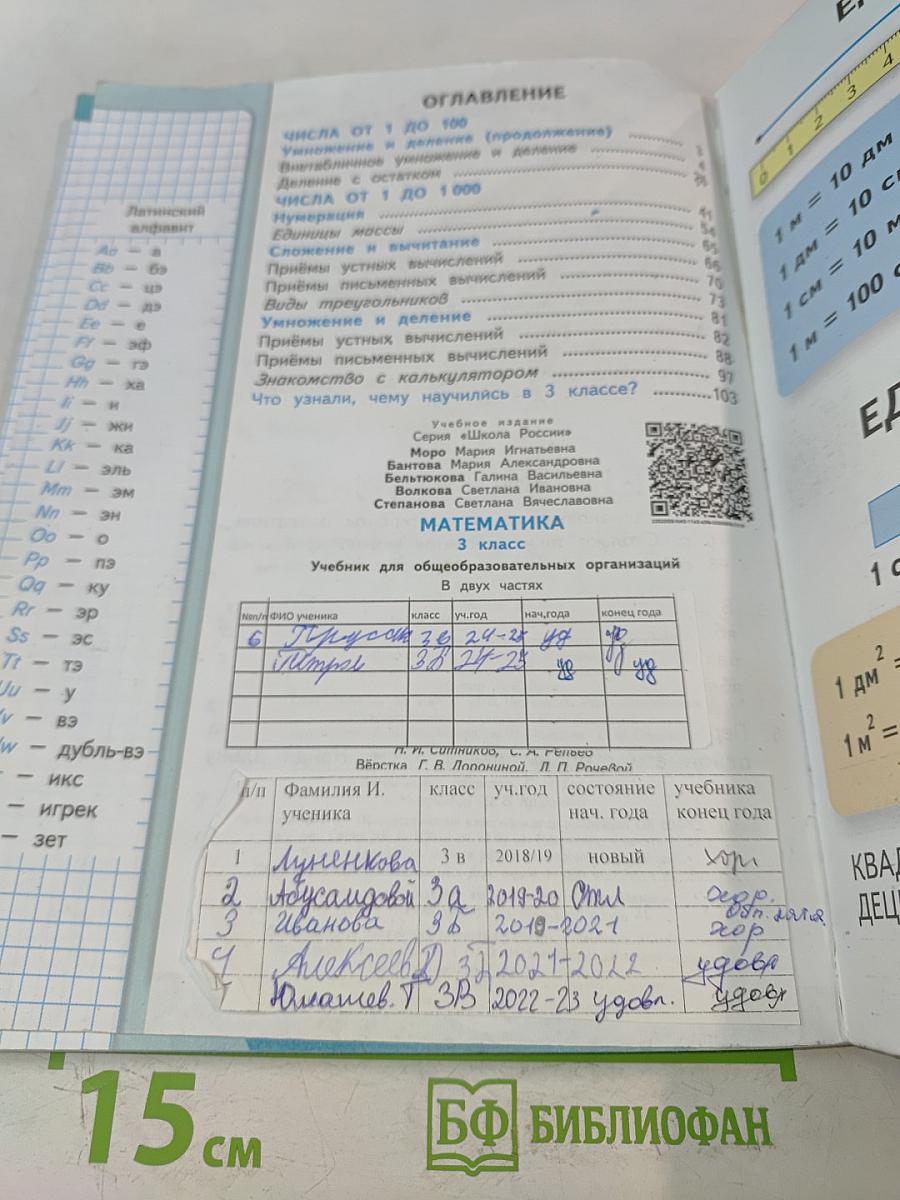 Латинский
алфавит
Aa — а
Bb — бэ
Cc — цэ
Dd — дэ
Ee — е
Ff — эф
Gg — гэ
Hh — ха
Ii — и
Jj — жи
Kk — ка
Ll — эль
Mm — эм
Nn — эн
Oo — о
Pp — пэ
Qq — ку
Rr — эр
Ss — эс
Tt — тэ
Uu — у
v — вэ
w — дубль-вэ
— икс
— игрек
— зет
ОГЛАВЛЕНИЕ
ЧИСЛА ОТ 1 ДО 100
Умножение и деление (продолжение) 3
Внетабличное умножение и деление 4
Деление с остатком 26
ЧИСЛА ОТ 1 ДО 1 000
Нумерация 41
Единицы массы 54
Сложение и вычитание 65
Приёмы устных вычислений 66
Приёмы письменных вычислений 70
Виды треугольников 73
Умножение и деление 81
Приёмы устных вычислений 82
Приёмы письменных вычислений 88
Знакомство с калькулятором 97
Что узнали, чему научились в 3 классе? 103
Учебное издание
Серия «Школа России»
Моро Мария Игнатьевна
Бантова Мария Александровна
Бельтюкова Галина Васильевна
Волкова Светлана Ивановна
Степанова Светлана Вячеславовна
МАТЕМАТИКА
3 класс
Учебник для общеобразовательных организаций
В двух частях
№п/п ФИО ученика класс уч.год нач.года конец года
6 3в 24-25 уд уд
3в 24-25 уд уд
Вёрстка Г. В. Дорониной, Л. П. Рочевой
п/п Фамилия И. ученика класс уч.год состояние нач. года учебника конец года
1 Луненкова 3 в 2018/19 новый хор
2 Абусаидовой 3а 2019-20 отл хор.
3 Иванова 3Б 2019-2021 хор
4 Алексеев Д 2021-2022 удовр
Юмашев. Т 3В 2022-23 удовл. удовр
0 1 2 3 4
1 м = 10 дм
1 дм = 10 с
1 см = 10 м
1 м = 100 с
ЕД
1 с
1 дм² =
1 м² =
КВАД
ДЕЦ
15 см
БФ БИБЛИОФАН